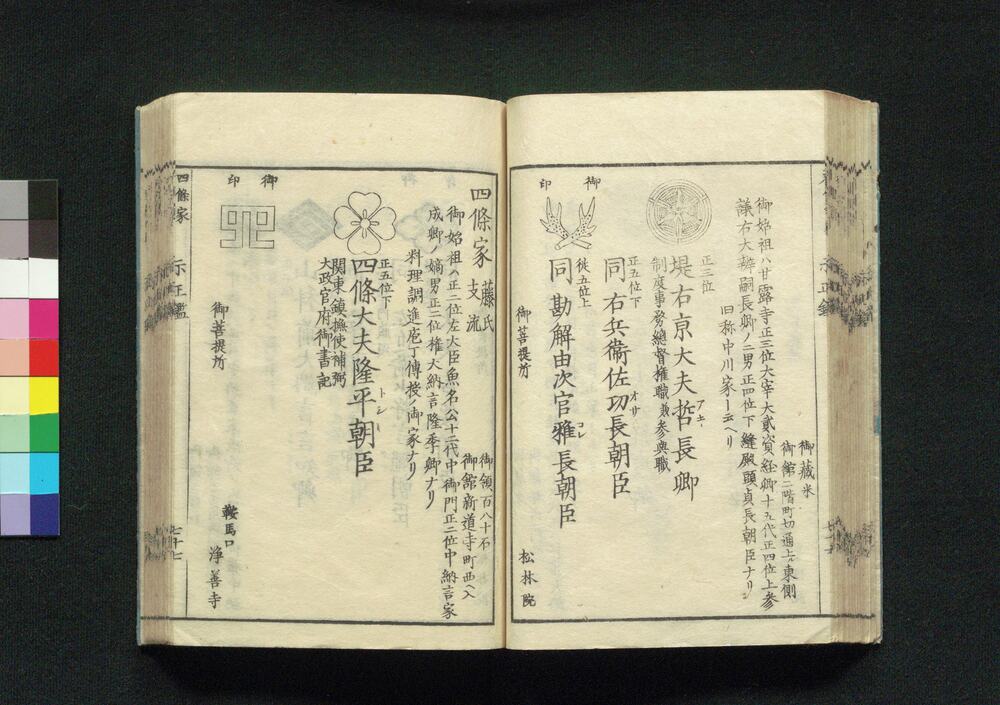 御蔵米
御館二階町切通上ル東側
御始祖ハ甘露寺正三位大宰大貳資経卿十五代正四位上参
議右大辨嗣長卿ノ二男正四位下縫殿頭貞長朝臣ナリ
旧称中川家ト云ヘリ
正三位
堤右京大夫哲長卿
アキ
制度事務総督権職兼参與職
正五位下
同右兵衛佐功長朝臣
オサ
従五位上
同勘解由次官雅長朝臣
コレ
御印
御菩提所
松林院
四條家
藤氏
支流
御領百八十石
御館新道寺町西ヘ入
御始祖ハ正二位左大臣魚名公十二代中御門正二位中納言家
成卿ノ嫡男正二位権大納言隆季卿ナリ
料理調進庖丁傳授ノ御家ナリ
正五位下
四條大夫隆平朝臣
トシ
関東鎮撫使補弼
大政官府御書記
御印
御菩提所
鞍馬口
浄善寺
四條家
示正鑑
七十七